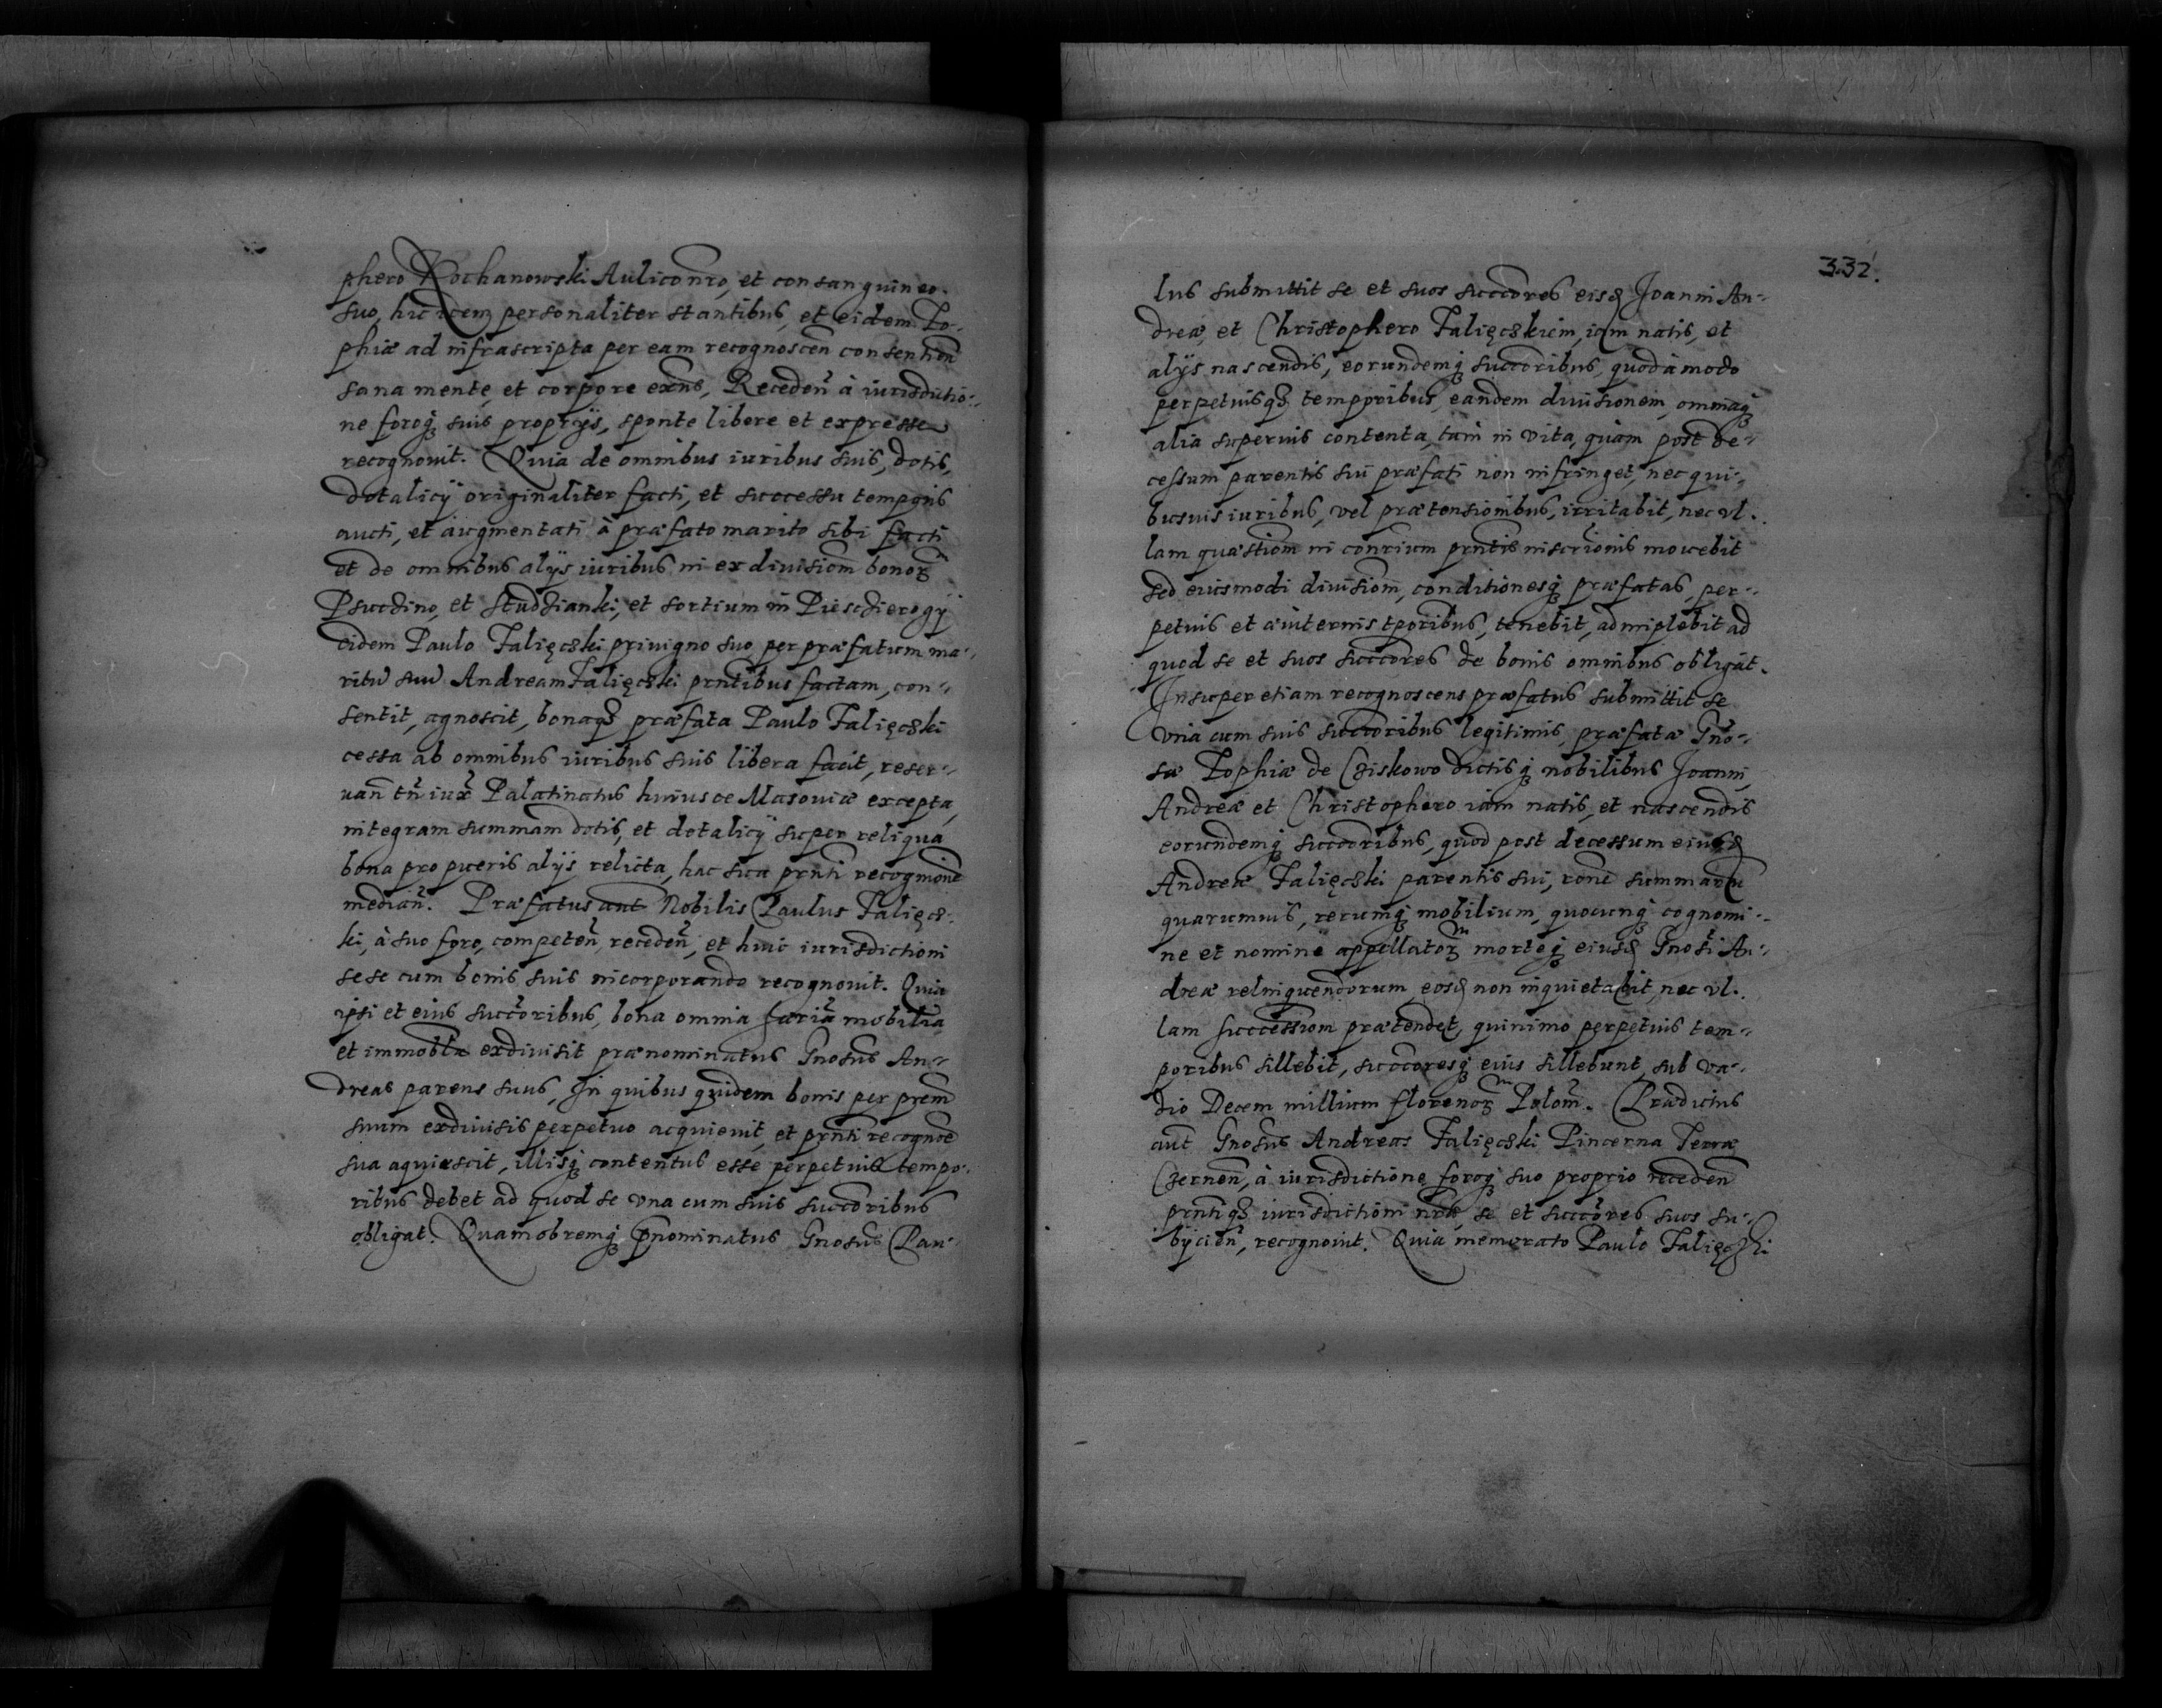 phero Kochanowski Aulico nro, et consanguineo
suo, hic itidem personaliter stantibus, et eidem Zo-
phiæ ad infrascripta per eam recognoscen consentien
sana mente, et corpore exns, Receden à iurisdictio-
ne foroq suis proprijs, sponte libere et expresse
recognovit. Quia de omnibus iuribus suis, dotis,
dotalicÿ originaliter facti, et successu temporis
aucti, et augmentati à præfato marito sibi facti
et de omnibus alÿs iuribus in exdivisiom bonor
et Studzianki, et sortium in
eidem Paulo Falięcski privigno suo per præfatum ma-
ritu suu Andream Falięcski prntibus factam, con-
sentit, agnoscit, bonaq præfata Paulo Falięcski
cessa ab omnibus iuribus suis libera facit, reser-
uan tn iux Palatinatus huiusce Masouiæ excepta,
integram summam dotis, et dotalicÿ super reliqua
bona pro pueris alÿs relicta, hac sua prnti recognione
median. Præfatus aut Nobilis Paulus Falięcs-
ki, à suo foro, competen, receden, et huic iurisdictioni
sese cum bonis suis incorporando recognouit. Quia
ipsi et eius succoribus, bona omnia mobilia
et immobla exdivisit prænominatus Gnosus An-
dreas parens suus, In quibus quidem bonis per prem
suum exdivisis perpetuo acquievit, et prnti recogne
sua aquiescit, illisq contentus esse perpetuis tempo-
ribus debet ad quod se vna cum suis succoribus
obligat. Quamobremq pnominatus Gnosus Pau-
332.
lus submittit se et suos succores eisd Joanni An-
dreæ, et Christophero Falięcskiem, iam natis, et
alÿs nascendis, eorundemq succoribus, quod à modo
perpetuisq temporibus, eandem diuisionem, omniaq
alia superius contenta, tam in vita, quàm post de-
cessum parentis sui præfati non infringet, nec qui-
busuis iuribus, vel prætensionibus, irritabit, nec vl-
lam quæstiom in conrium prntis inscrionis mouebit
sed eiusmodi divisiom, conditionesq præfatas, per-
petuis et æuiternis tporibus, tenebit, adimplebit ad
quod se et suos succores de bonis omnibus obligat.
Insuper etiam recognoscens præfatus submittit se
vna cum suis succoribus legitimis, præfatæ Gno-
sæ Zophiæ de Cziskowo dictisq nobilibus Joanni,
Andreæ et Christophero iam natis, et nascendis
eorundemq succoribus, quod post decessum eiusd
Andreæ Falięcski parentis sui, rone summaru
quarumuis, rerumq mobilium, quocunq cognomi-
ne et nomine appellator morteq eiusd Gnosi An-
dreæ relinquendorum, eosd non inquietabit, nec vl-
lam successiom prætendet, quinimo perpetuis tem-
poribus sillebit, succoresq eius sillebunt, sub va-
dio Decem millium florenor Polom. Prædictus
aut Gnosus Andreas Falięcski Pincerna Terræ
Czernen, à iurisdictione foroq suo proprio receden
prntiq iurisdictioni nræ, se et succores suos su-
bÿcien, recognouit. Quia memorato Paulo Falięcski